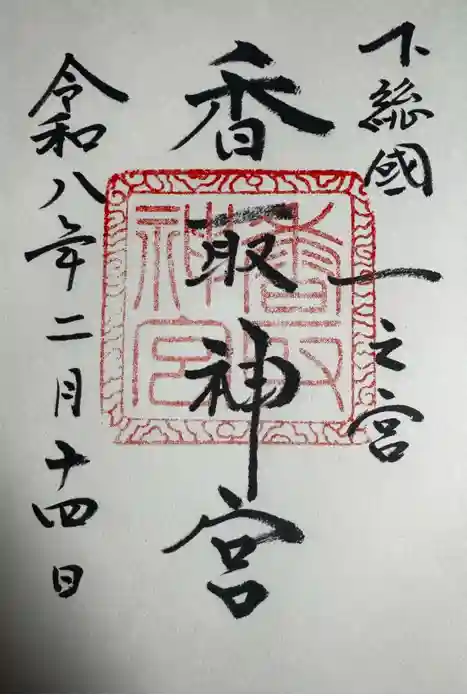 下総國一之宮
香取神宮
香取神宮
令和八年二月十四日